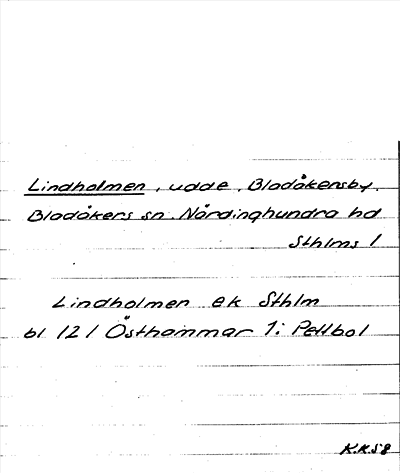 Lindholmen, udde, Bladåkersby,
Bladåkers sn Närdinghundra hd
Sthlms l
Lindholmen ek Sthlm
bl 121 Östhammar 1: Pettbol
K.K.58